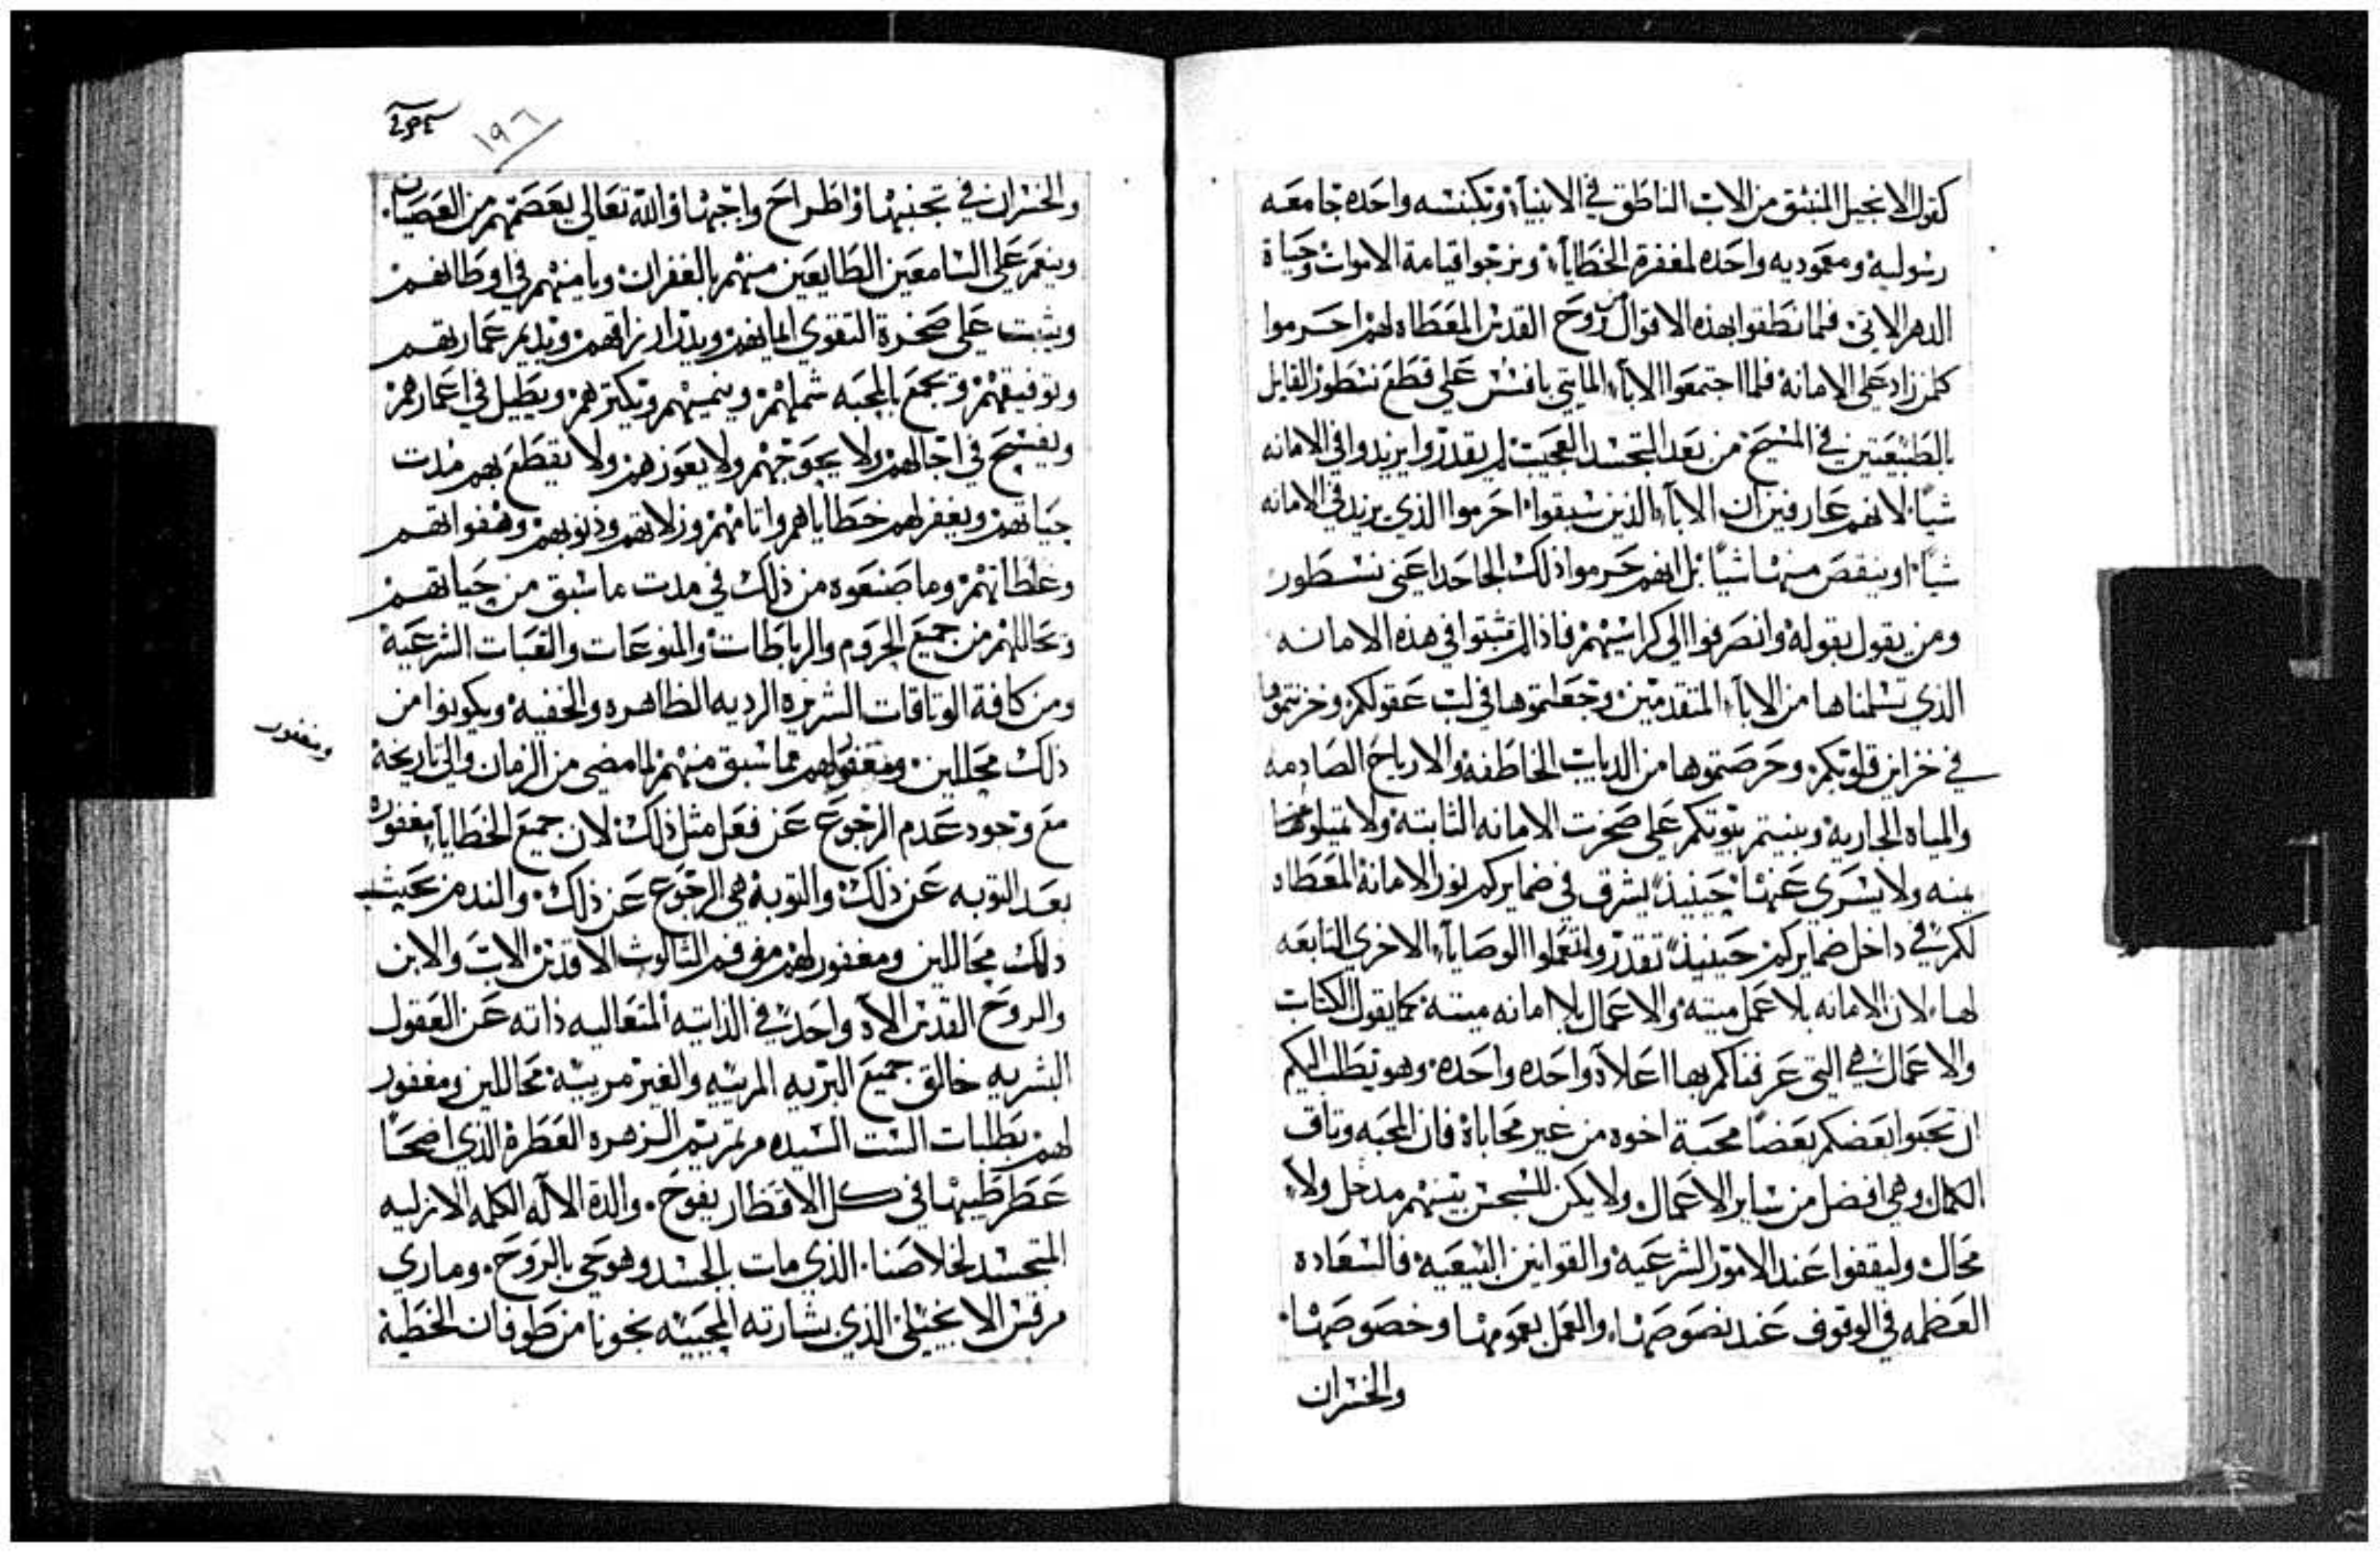 كقول الانجيل المنبثق من الاب الناطق في الانبيآء وبكنسه واحده جامعه
رسوليه ومعموديه واحده لمغفرة الخطايآء ونرجوا قيامة الاموات وحياة
الدهر الاتي فلما نطقوا بهذه الاقوال من روح القدس المعطاه لهم احرموا
كلمن زاد على الامانة فلما اجتمعوا الابآء المايتي بافسس على قطع نسطور القايل
بالطبيعتين في المسيح من بعد التجسد العجيب لم يقدروا يزيدوا في الامانه
شياً لانهم عارفين ان الابآء الذين سبقوا احرموا الذي يزيد في الامانه
شياً او ينقص منها شياً بل انهم حرموا ذلك الجاحد اعنى نسطور
ومن يقول بقوله وانصرفوا الى كراسيهم فاذا لم تثبتوا في هذه الامانه
الذي تسلمناها من الابآء المتقدمين وجعلتموها في لب عقولكم وخزنتموها
في خزاين قلوبكم وحرصتموها من الديابت الخاطفه والارياح الصادمه
والمياه الجاريه وبنيتم بيوتكم على صخرت الامانه الثابتة ولا تميلوا عنها
يمنه ولا يسرى عنها حينيذ يشرق في ضمايركم نور الامانة المعطاه
لكم في داخل ضمايركم حينيذ تقدروا تعملوا الوصايآء الاخرى التابعه
لها لان الامانه بلا عمل ميته والاعمال بلا امانه ميتة كما يقول الكتاب
والاعمال هي التي عرفناكم بها اعلاه واحده واحده وهو يطلب اليكم
ان تحبوا بعضكم بعضاً محبة اخوه من غير محاباة فان المحبه وتاق
الكمال وهي افضل من ساير الاعمال ولا يكن للسجس بينهم مدخل ولا
محال وليقفوا عند الامور الشرعية والقوانين البيعيه فالسعاده
العظمه في الوقوف عند نصوصها والعمل بعمومها وخصوصها
والخسران
١٩٦
والخسران في تجنبها واطراح واجبها والله تعالى يعصمهم من العصيان
وينعم على السامعين الطايعين منهم بالغفران ويامنهم في اوطانهم
ويثبت على صخرة التقوى ايمانهم ويدر ارزاقهم ويديم عمارتهم
وتوفيقهم ويجمع بالمحبه شملهم وينميهم ويكترهم ويطيل في اعمارهم
ويفسح في اجالهم ولا يحوجهم ولا يعوزهم ولا يقطع بهم مدت
حياتهم ويغفر لهم خطاياهم واتامهم وزلاتهم وذنوبهم وهفواتهم
وغلطاتهم وما صنعوه من ذلك في مدت ما سبق من حياتهم
وتحاللهم من جميع الحروم والرباطات والمنوعات والتبات الشرعية
ومن كافة الوتاقات الشريره الرديه الظاهره والخفيه ويكونوا من
ذلك محاللين ومغفور لهم مما سبق منهم لما مضى من الزمان والى تاريخة
ومغفور
مع وجود عدم الرجوع عن فعل مثل ذلك لان جميع الخطايآ مغفوره
بعد التوبه عن ذلك والتوبه هي الرجوع عن ذلك والندم من حيث
ذلك محاللين ومغفور لهم من فم الثالوث الاقدس الاب والابن
والروح القدس الاه واحد في الذاتيه المتعاليه ذاته عن العقول
البشريه خالق جميع البريه المرييه والغير مرييه محاللين ومغفور
لهم بطلبات الست السيده مرتمريم الزهره العطرة الذي اضحا
عطر طيبها في كل الاقطار يفوح والدة الاله الكلمه الازليه
المتجسد لخلاصنا الذي مات بالجسد وهو حي بالروح وماري
مرقس الانجيلي الذي بشارته المحييه نجونا من طوفان الخطية